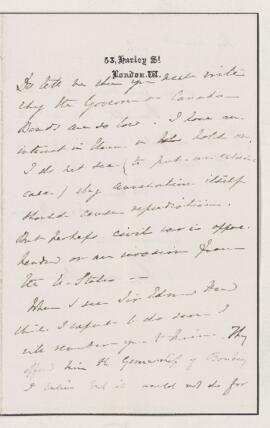 53, Harley St.
London. W.
Do tell me when you next write
why the Government Canada
Bonds are so low. I have an
interest in them & hold on.
I do not see (to put an extreme
case) why annexation itself
should cause repudiation.
But perhaps civil war is appre-
hended or an invasion from
the U. States —
When I see Sir Edmund Head
which I expect to do soon I
will remember you to him. They
offered him the Governorship of Bombay
I believe but it would not do for